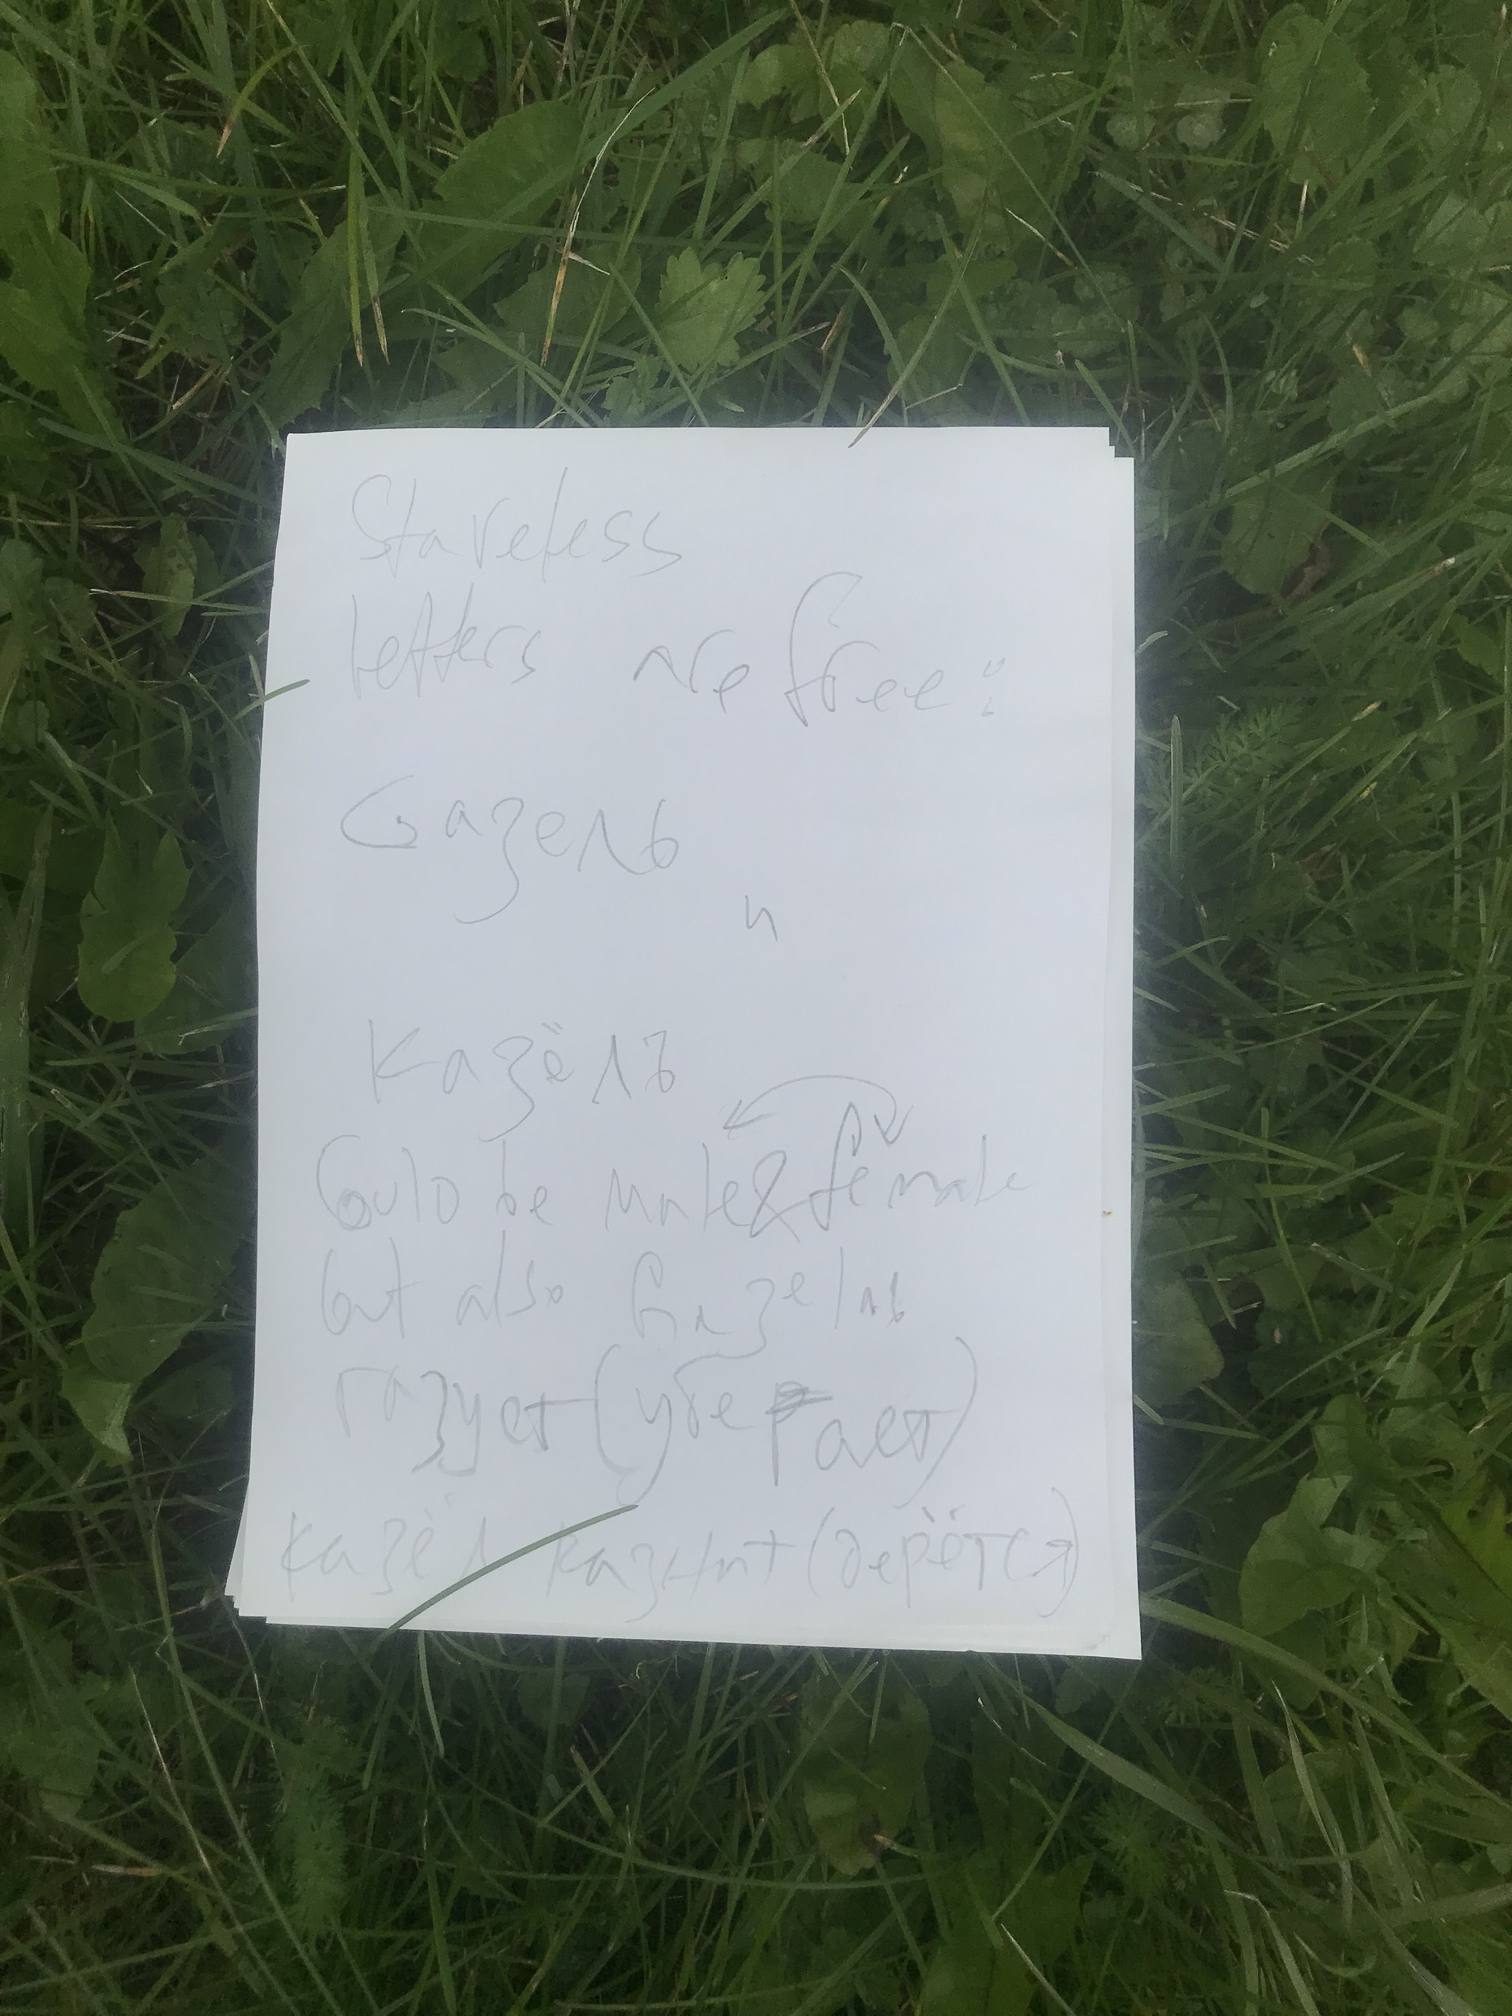 Staveless
letters are free:
Gазель
и
Казёлъ
Could be male & female
but also Gазель
газует (убегает)
казёл казнит (дерётся)